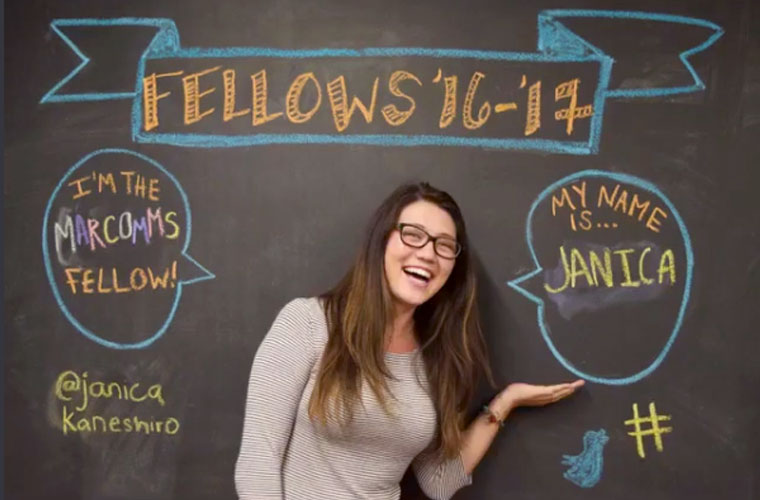 FELLOWS '16-'17
I'M THE
MARCOMMS
FELLOW!
MY NAME
IS...
JANICA
@janica
Kaneshiro
#